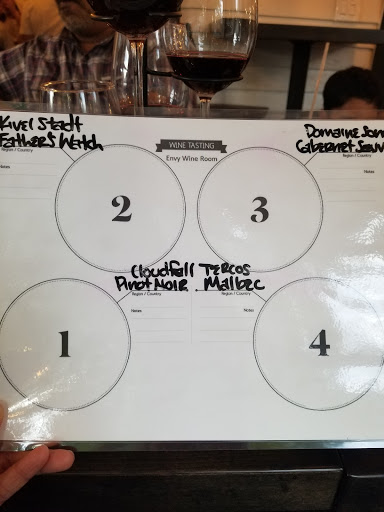 WINE TASTING
Envy Wine Room
Kivel Stadt
Father's Watch
Region / Country
Notes
2
Domaine
Cabernet Sauv
Region / Country
Notes
3
Cloudfall
Pinot Noir
Region / Country
Notes
1
TERCOS
Malbec
Region / Country
Notes
4